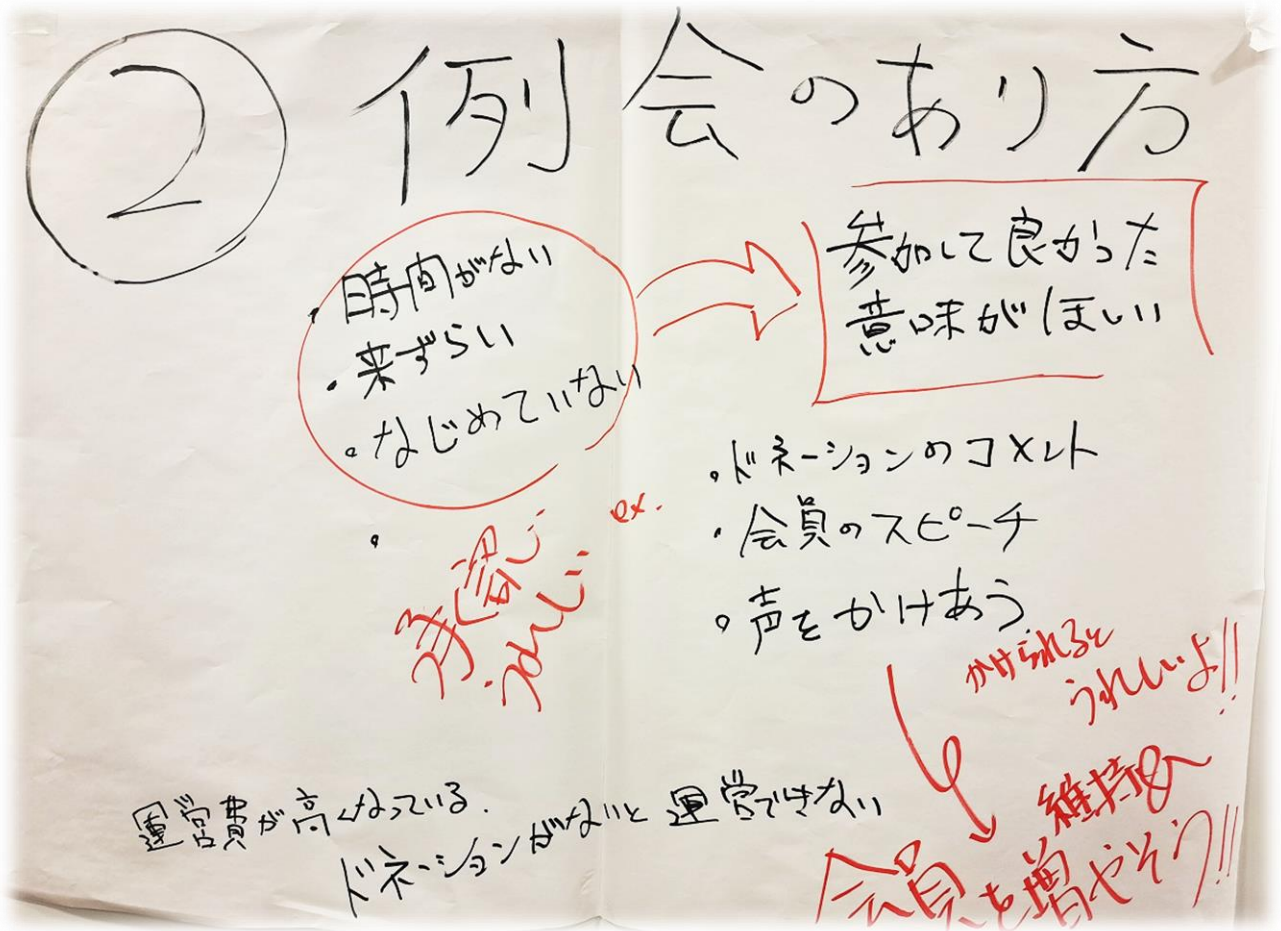 ② 例会のあり方
・時間がない
・来ずらい
・なじめていない
・
参加して良かった
意味がほしい
ex.
・ドネーションのコメント
・会員のスピーチ
・声をかけあう
かけられると
うれしいよ!!
うれしい
運営費が高くなっている.
ドネーションがないと運営できない
維持&
会員を増やそう!!